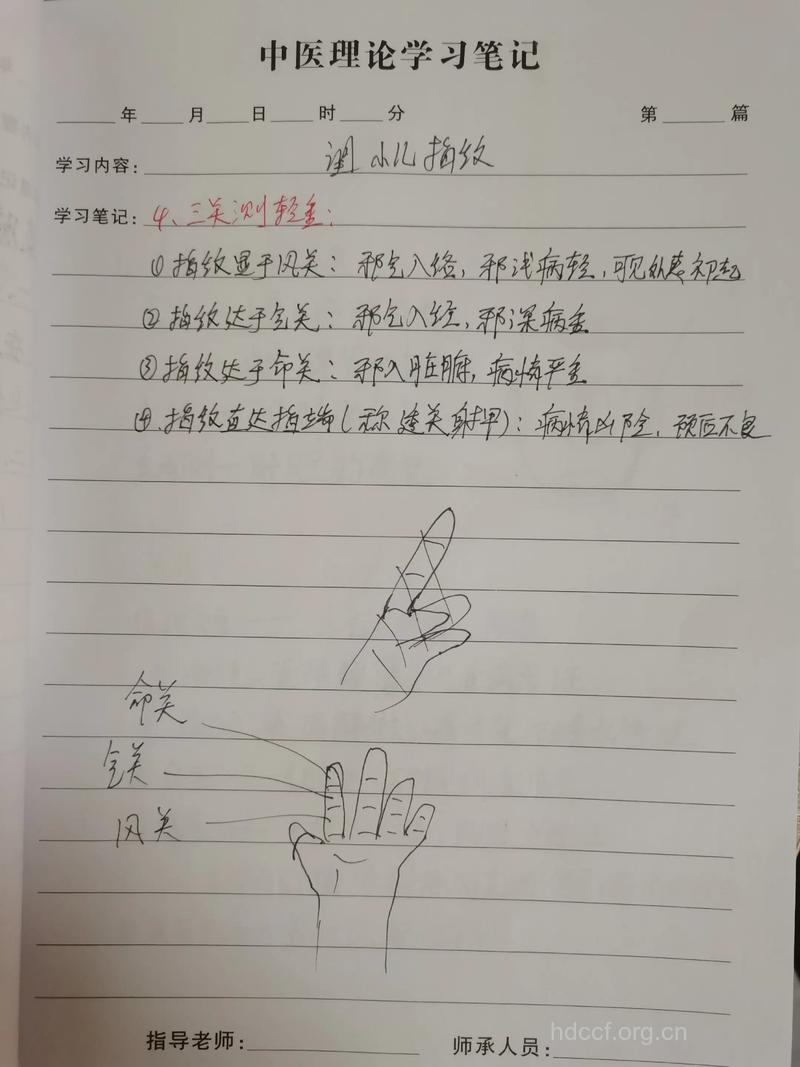 中医理论学习笔记
年 月 日 时 分 第 篇
学习内容: 小儿指纹
学习笔记: 4、三关测轻重:
①指纹显于风关:邪气入络,邪浅病轻,可见外感初起
②指纹达于气关:邪气入经,邪深病重
③指纹达于命关:邪入脏腑,病情严重
④.指纹直达指端(称透关射甲):病情凶险,预后不良
命关
气关
风关
指导老师: 师承人员:
hdccf.org.cn